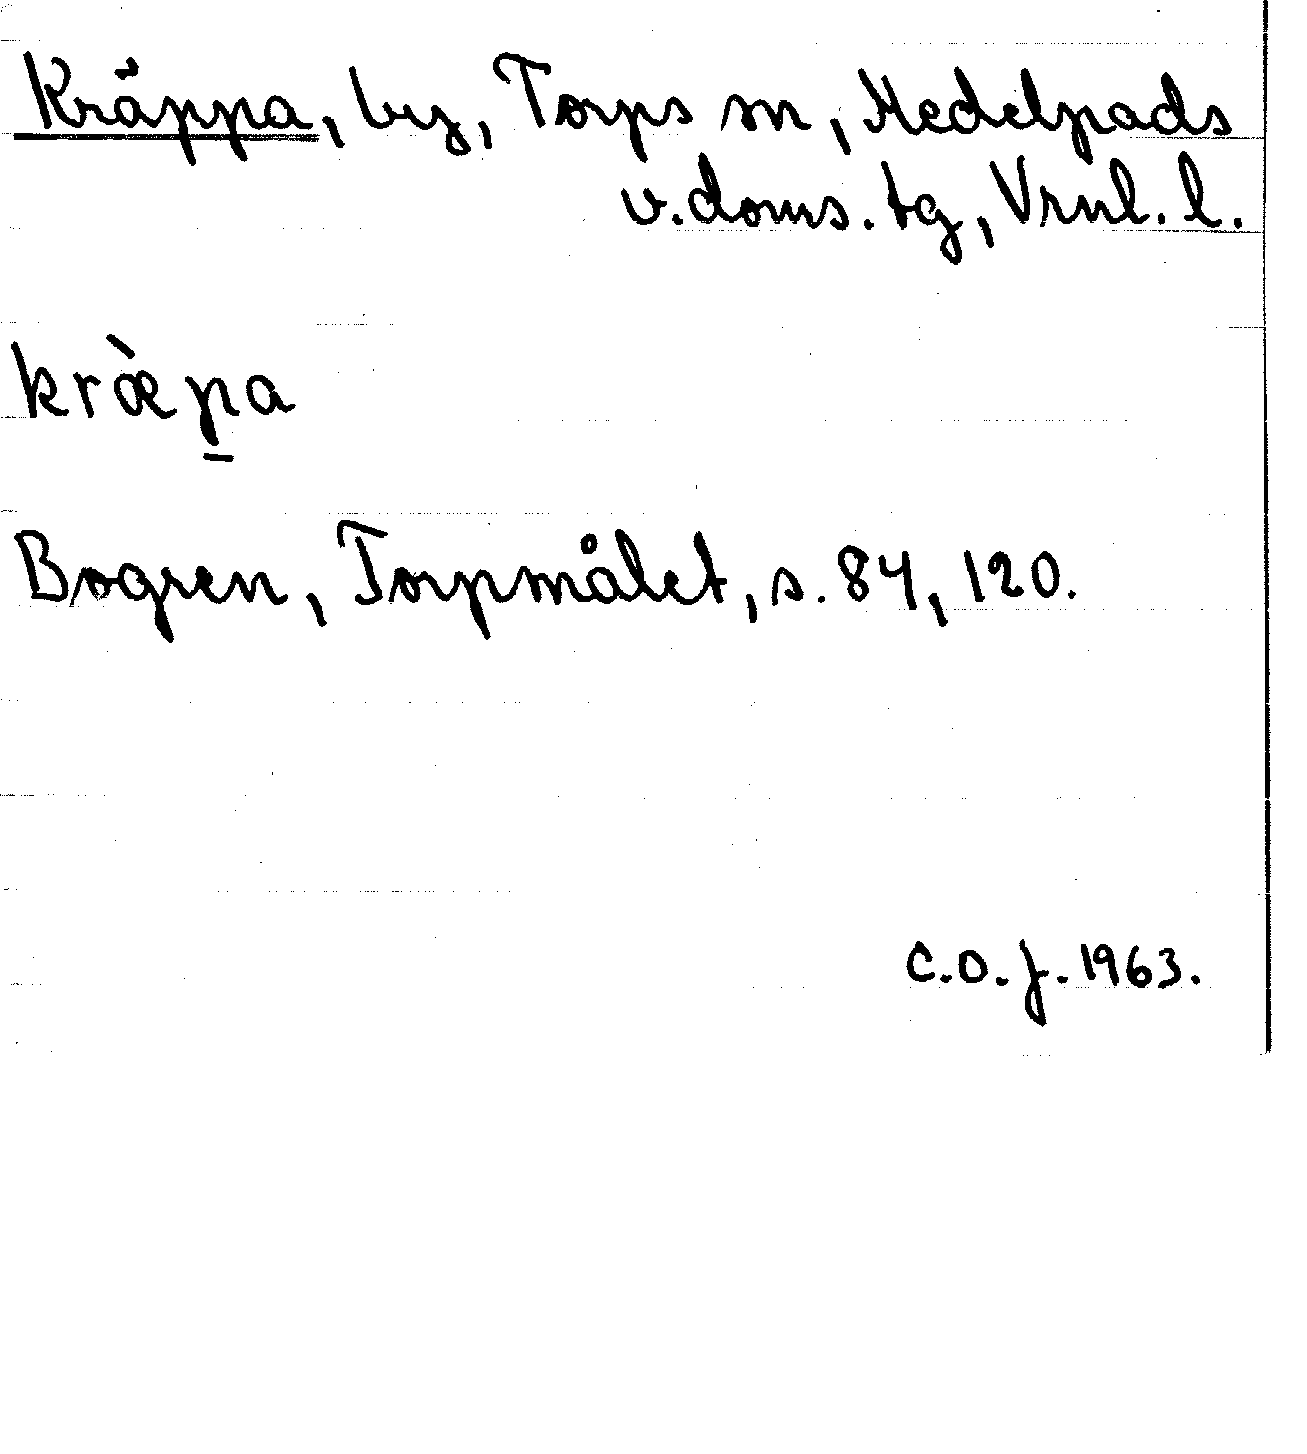 Kräppa, by, Torps sn, Medelpads
v. doms. tg, Vrnl. l.
kræ̀p̱a
Bogren, Torpmålet, s. 84, 120.
C.O.J. 1963.